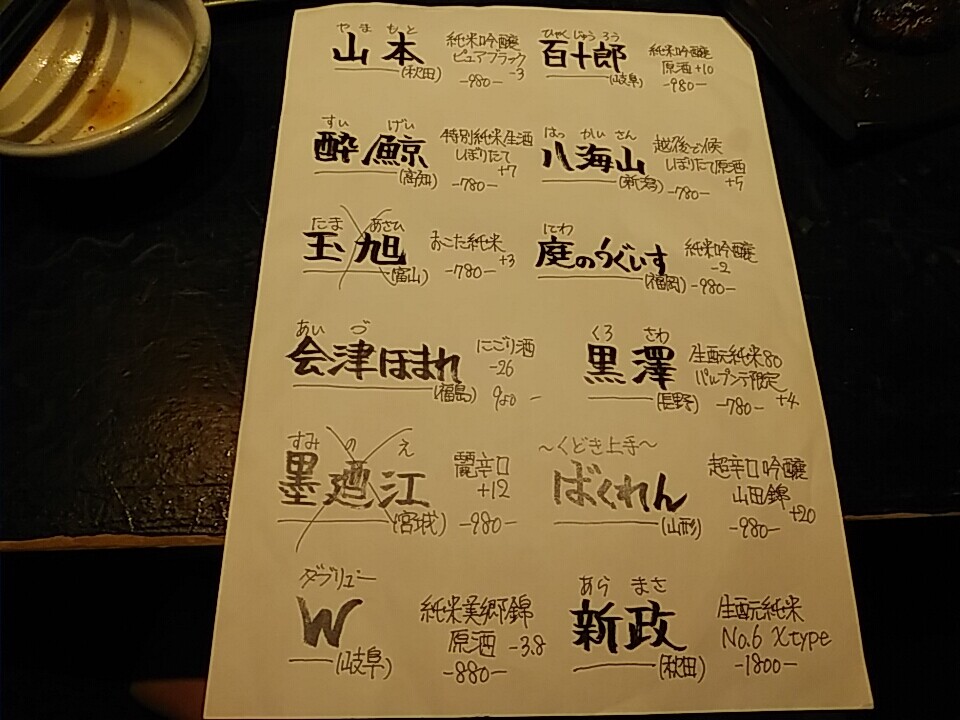 やまもと
山本
(秋田)
純米吟醸
ピュアブラック
-3
-980-
ひゃくじゅうろう
百十郎
(岐阜)
純米吟醸
原酒+10
-980-
すいげい
酔鯨
(高知)
特別純米生酒
しぼりたて
+7
-780-
はっかいさん
八海山
(新潟)
越後で候
しぼりたて原酒
+5
-780-
たまあさひ
玉旭
(富山)
おこた純米
+3
-780-
にわ
庭のうぐいす
(福岡)
純米吟醸
-2
-980-
あいづ
会津ほまれ
(福島)
にごり酒
-26
くろさわ
黒澤
(長野)
生酛純米80
パルプンテ限定
-780- +4
すみのえ
墨廼江
(宮城)
辛口
+12
-980-
～くどき上手～
ばくれん
(山形)
超辛口吟醸
山田錦
+20
-980-
ダブリュー
W
(岐阜)
純米美郷錦
原酒 -3.8
-880-
あらまさ
新政
(秋田)
生酛純米
No.6 Xtype
-1800-